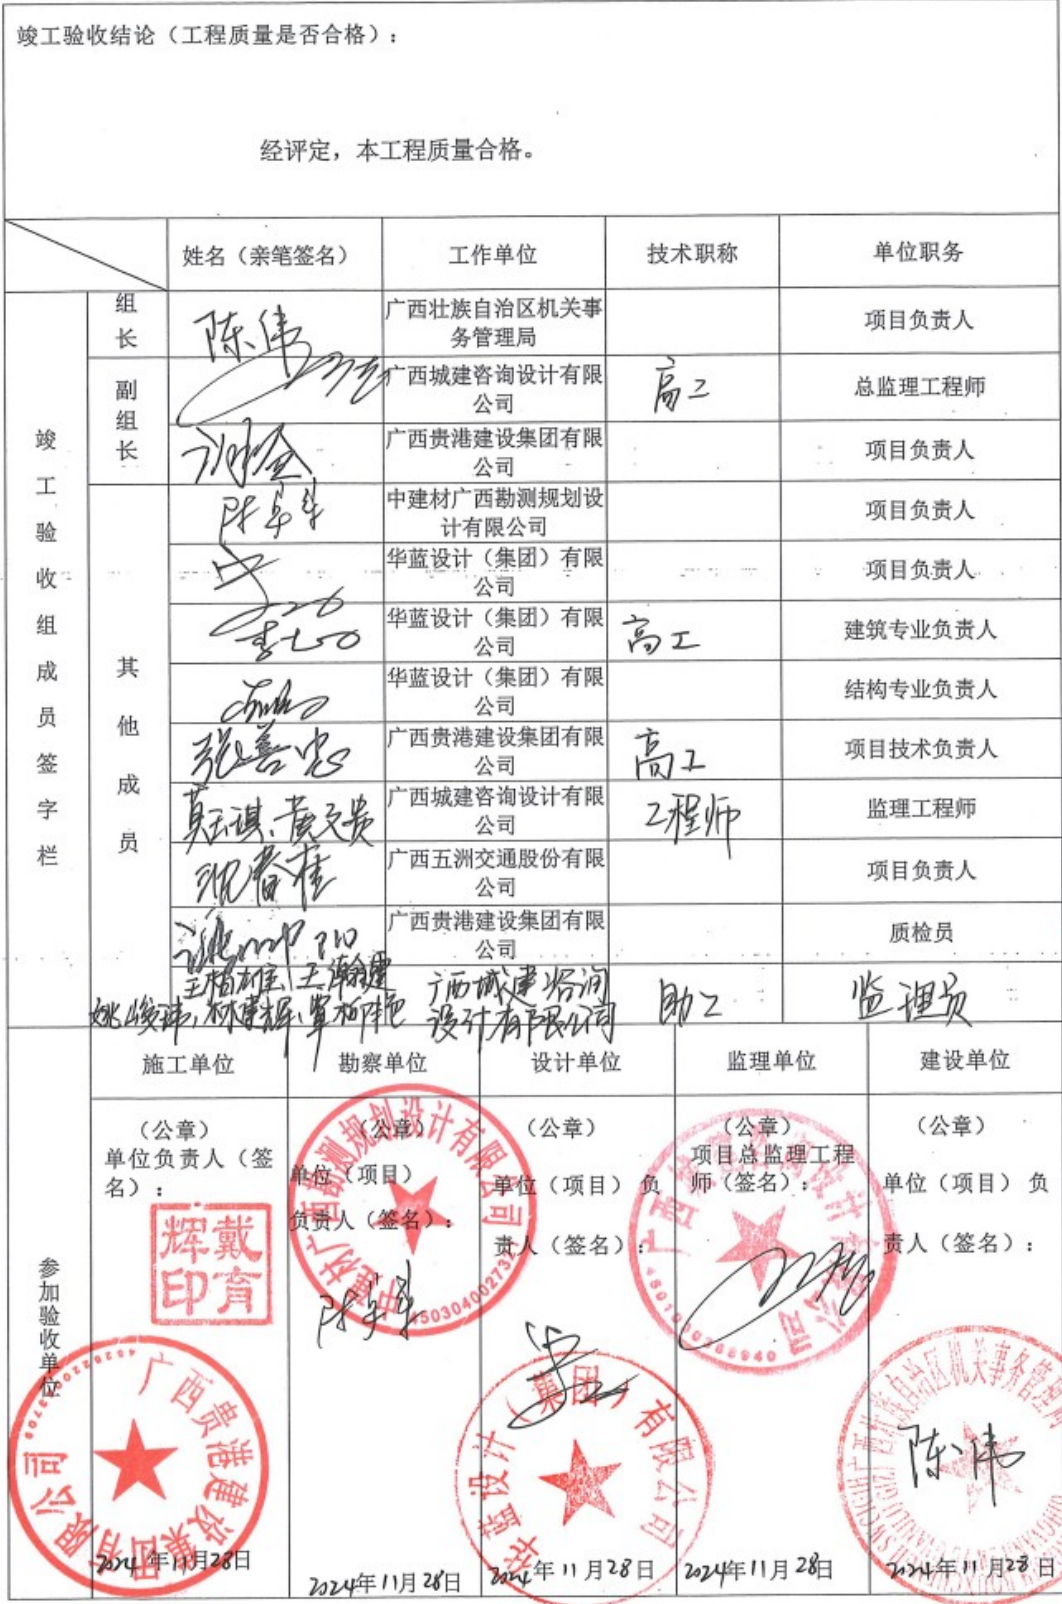 竣工验收结论（工程质量是否合格）：
经评定，本工程质量合格。
姓名（亲笔签名） 工作单位 技术职称 单位职务
竣工验收组成员签字栏
组长
陈伟 广西壮族自治区机关事务管理局 项目负责人
副组长
广西城建咨询设计有限公司 高工 总监理工程师
广西贵港建设集团有限公司 项目负责人
其他成员
中建材广西勘测规划设计有限公司 项目负责人
华蓝设计（集团）有限公司 项目负责人
华蓝设计（集团）有限公司 高工 建筑专业负责人
华蓝设计（集团）有限公司 结构专业负责人
张善忠 广西贵港建设集团有限公司 高工 项目技术负责人
黄文贵 广西城建咨询设计有限公司 工程师 监理工程师
沈春桂 广西五洲交通股份有限公司 项目负责人
广西贵港建设集团有限公司 质检员
广西城建咨询设计有限公司 助工 监理员
参加验收单位
施工单位 勘察单位 设计单位 监理单位 建设单位
（公章）
单位负责人（签名）：
戴育辉印
广西贵港建设集团有限公司
2024年11月28日
（公章）
单位（项目）
负责人（签名）：
中建材广西勘测规划设计有限公司
2024年11月28日
（公章）
单位（项目）负
责人（签名）：
华蓝设计（集团）有限公司
2024年11月28日
（公章）
项目总监理工程
师（签名）：
2024年11月28日
（公章）
单位（项目）负
责人（签名）：
广西壮族自治区机关事务管理局
陈伟
2024年11月28日